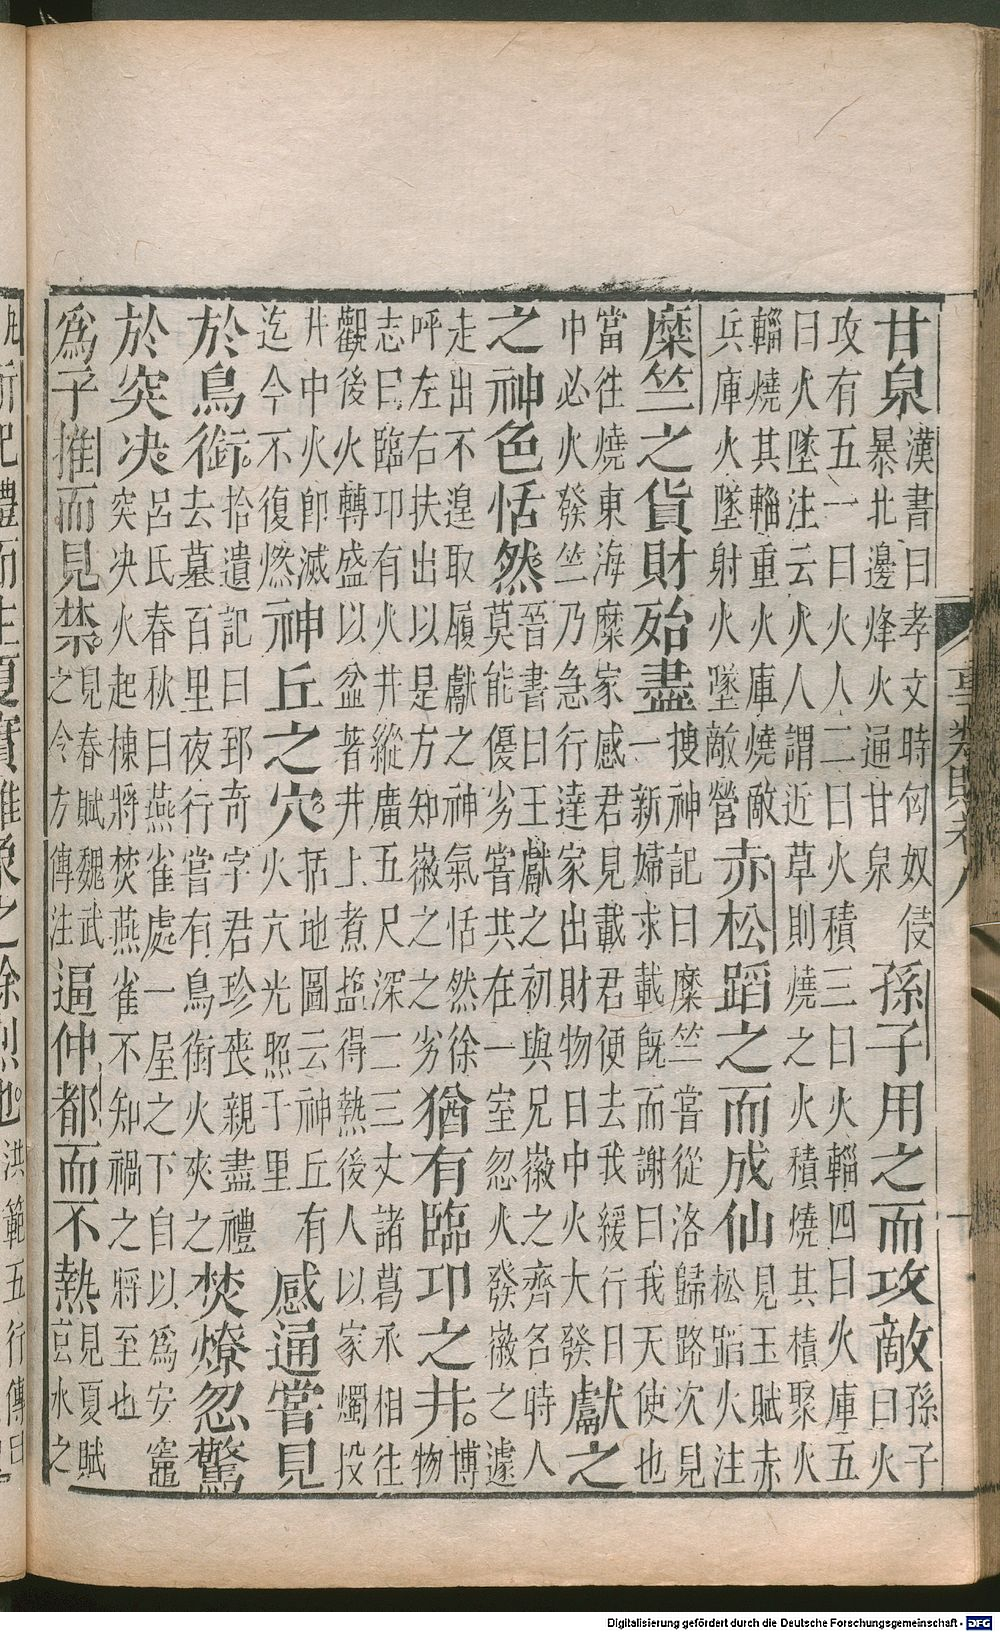 甘泉漢書曰孝文時匈奴侵暴北邊烽火通甘泉孫子用之而攻敵孫子曰火
攻有五一曰火人二曰火積三曰火輜四曰火庫五
曰火墜注云火人謂近草則燒之火積燒其積聚火
輜燒其輜重火庫燒敵兵庫火墜射火墜敵營赤松蹈之而成仙見玉賦赤松蹈火注
糜竺之貨財殆盡搜神記曰糜竺嘗從洛歸路次見一新婦求載既而謝曰我天使也
當往燒東海糜家感君見載君便去我緩行日中必火發竺乃急行達家出財物日中火大發獻之
之神色恬然晉書曰王獻之初與兄徽之齊名時人莫能優劣嘗共在一室忽火發徽之遽
走出不遑取履獻之神氣恬然徐呼左右扶出以是方知徽之之劣猶有臨卭之井。博物
志曰臨卭有火井縱廣五尺深二三丈諸葛丞相往
觀後火轉盛以盆著井上煮盬得熱後人以家燭投
井中火即滅迄今不復燃神丘之穴。括地圖云神丘有火穴光照千里感通嘗見
於鳥銜。拾遺記曰郅奇字君珍喪親盡禮去墓百里夜行嘗有鳥銜火夾之焚燎忽驚
於突决。呂氏春秋曰燕雀處一屋之下自以爲安竈突决火起棟將焚燕雀不知禍之將至也
爲子推而見禁。見春賦魏武之令方傳注逼仲都而不熱見夏賦水之
事類賦卷八
一
所祀禮而主夏實離象之餘烈也。洪範五行傳曰
Digitalisierung gefördert durch die Deutsche Forschungsgemeinschaft - DFG